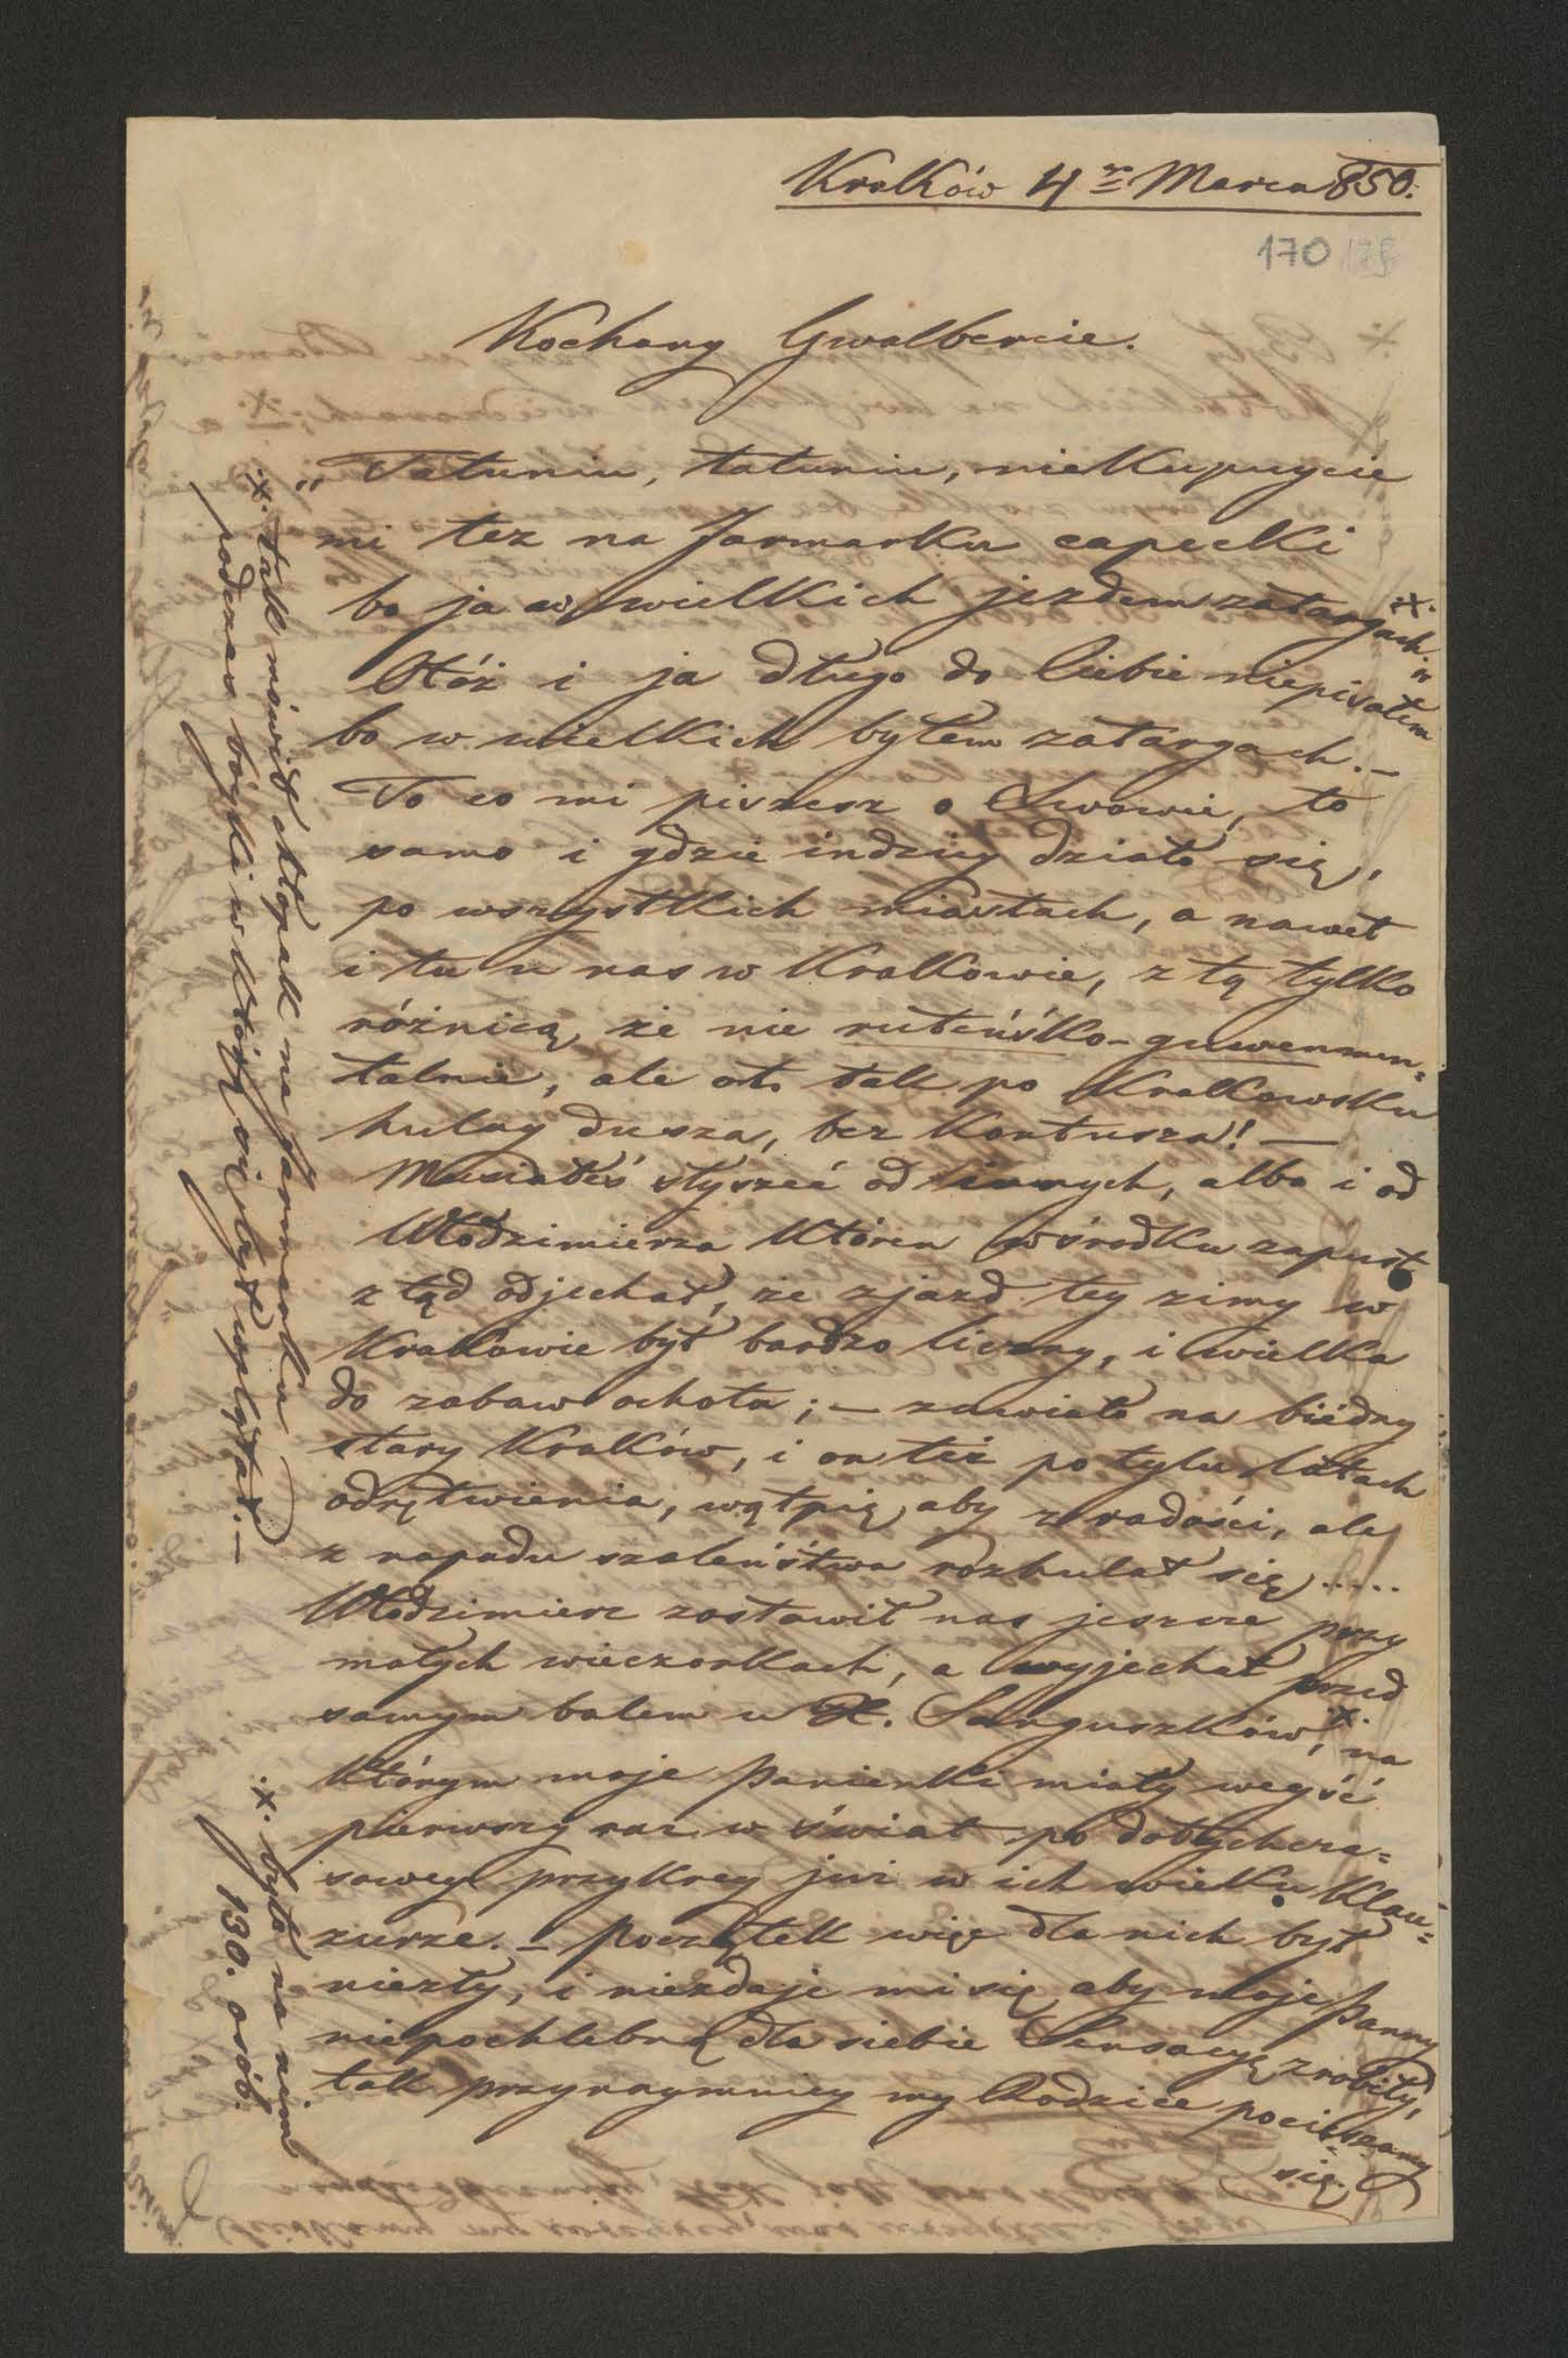 Kraków 4go Marca 850.
170
Kochany Gwalbercie.
„Tatuniu, tatuniu, niekupuycie
mi tez na Jarmarku capecki
bo ja w wielkich jezdem zatargach" .x.
Otóż i ja długo do Ciebie niepisałem
bo w wielkich byłem zatargach. –
To co mi piszesz o Lwowie, to
samo i gdzie indziey działo się,
po wszystkich miastach, a nawet
i tu u nas w Krakowie, z tą tylko
różnicą, że nie ruteńsko-guwernmen=
talnie, ale ot tak po Krakowsku
hulay dusza, bez kontusza! –
Musiałeś słyszeć od innych, albo i od
Włodzimierza któren wśrodku zapust
z tąd odjechał, że zjazd tey zimy w
Krakowie był bardzo liczny, i wielka
do zabaw ochota; – zawiało na biédny
stary Kraków, i on też po tylu latach
odrętwienia, wątpię aby z radości, ale
z napadu szaleństwa rozhulał się .....
Włodzimierz zostawił nas jeszcze przy
małych wieczorkach, a wyjechał przed
samym balem u X. Sanguszków, .x. na
którym moje panienki miały weyść
pierwszy raz w świat po dotychcza=
sowey przykrey już w ich wieku klau=
zurze. – Początek więc dla nich był
niezły, i niezdaje mi się aby moje panny
niepochlebną dla siebie Sensacyę zrobiły,
tak przynaymniey my Rodzice pocieszamy
się.
.x. tak mówił chłopak na Jarmarku
podczas bóyki w którą się był wplątał. –
.x. było na nim
130. osób.